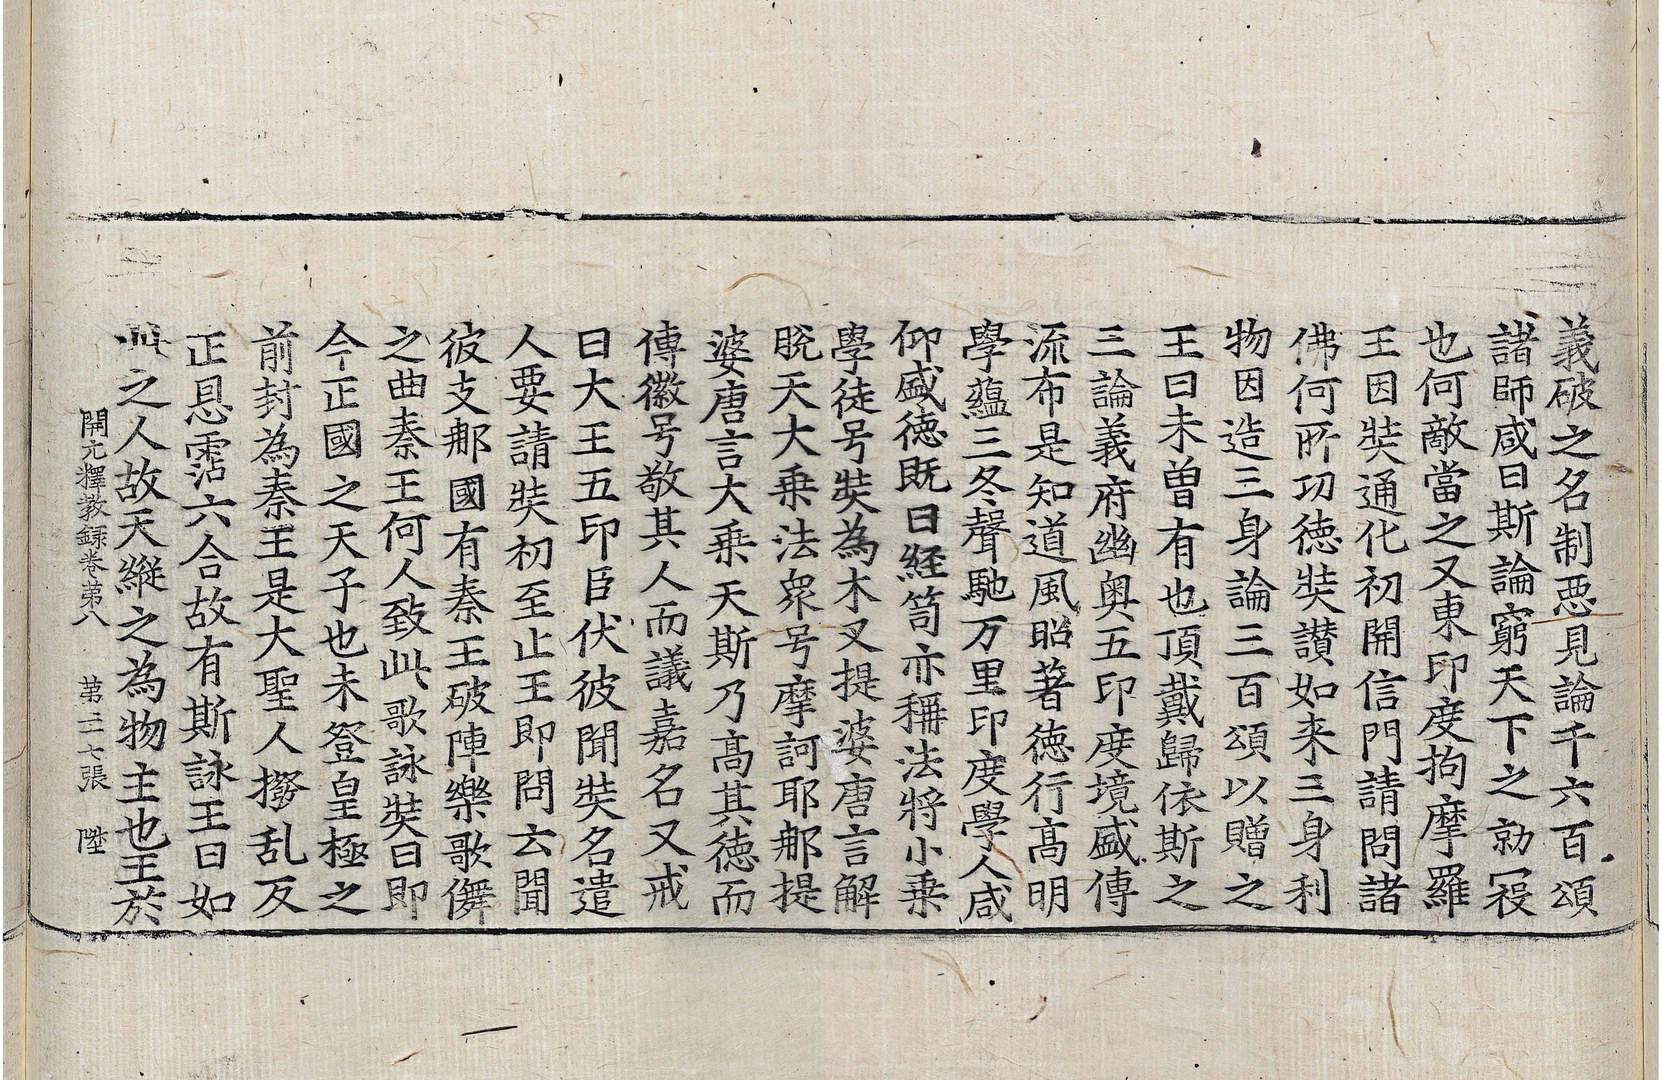 義破之名制惡見論千六百頌
諸師咸曰斯論窮天下之勍㓂
也何敵當之又東印度拘摩羅
王因奘通化初開信門請問諸
佛何所㓛德奘讃如来三身利
物因造三身論三百頌以贈之
王曰未曽有也頂戴歸依斯之
三論義府幽奥五印度境盛傳
流布是知道風昭著德行髙明
學蘊三冬聲馳万里印度學人咸
仰盛德既曰經笥亦稱法將小乗
學徒号奘為木叉提婆唐言解
脱天大乗法衆号摩訶耶那提
婆唐言大乗天斯乃髙其德而
傳徽号敬其人而議嘉名又戒
日大王五印臣伏彼聞奘名遣
人要請奘初至止王即問云聞
彼支那國有秦王破陣樂歌儛
之曲秦王何人致此歌詠奘曰即
今正國之天子也未登皇極之
前封為秦王是大聖人撥乱反
正恩霑六合故有斯詠王曰如
此之人故天縱之為物主也王於
開元釋教録卷第八 第三七張 陞